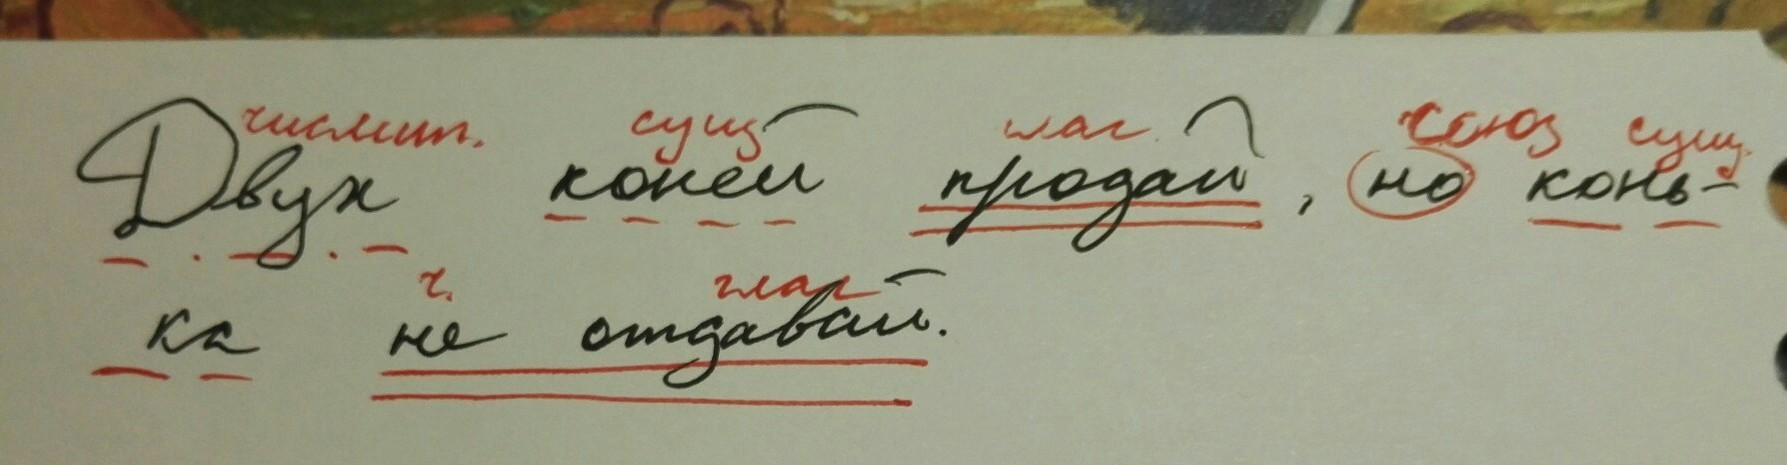 числит. сущ глаг. союз сущ.
Двух коней продай, но конь-
ч. глаг
ка не отдавай.